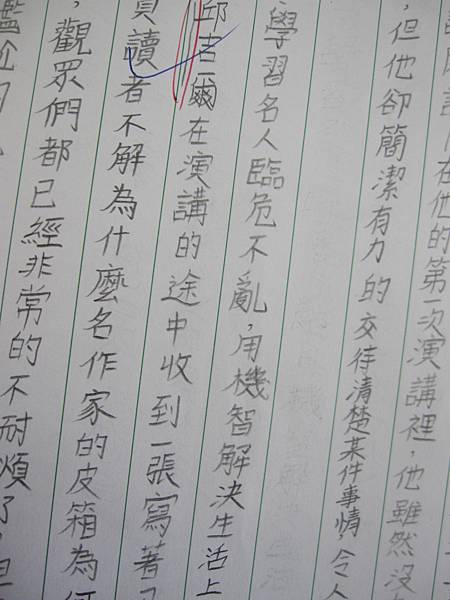 在他的第一次演講裡，他雖然沒
，但他卻簡潔有力的交待清楚某件事情，令人
學習名人臨危不亂，用機智解決生活上
邱吉爾在演講的途中收到一張寫著
讀者不解為什麼名作家的皮箱為何
，觀眾們都已經非常的不耐煩了，但
尬的